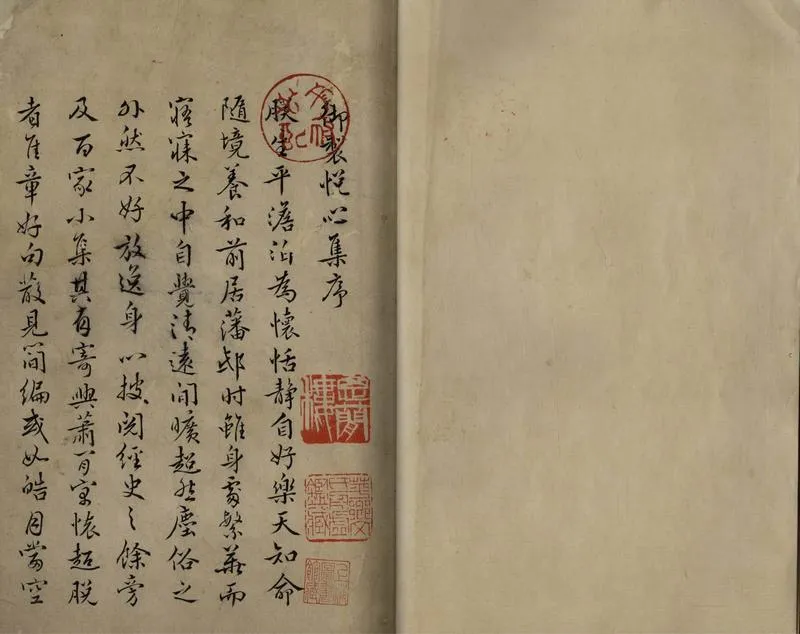 御製悅心集序
朕生平澹泊為懷恬靜自好樂天知命
隨境養和前居藩邸时雖身處繁華而
寤寐之中自覺清遠閒曠超然塵俗之
外然不好放逸身心披閱經史之餘旁
及百家小集其有寄興蕭閒寓懷超脫
者佳章好句散見簡編或如皓月當空